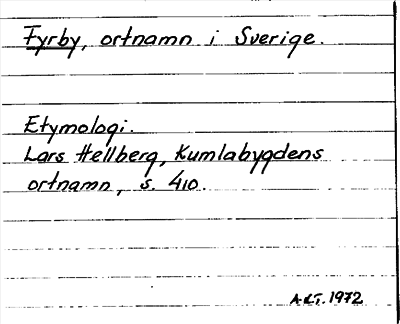 Fyrby, ortnamn i Sverige.
Etymologi.
Lars Hellberg, Kumlabygdens
ortnamn, s. 410.
A.L.T. 1972